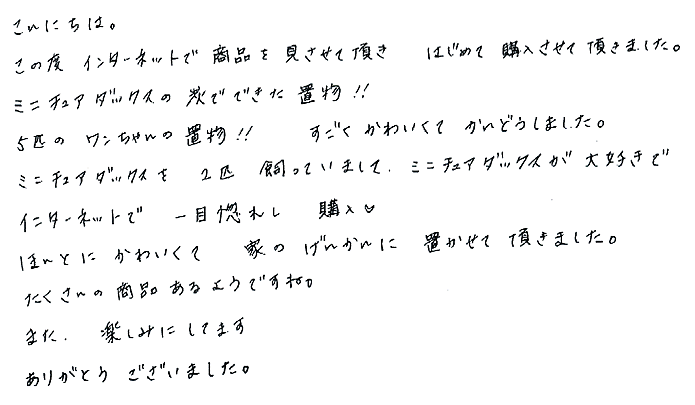 こんにちは。
この度 インターネットで 商品を 見させて頂き はじめて 購入させて頂きました。
ミニチュアダックスの 炭でできた 置物!!
5匹の ワンちゃんの 置物!! すごく かわいくて かんどうしました。
ミニチュアダックスを 2匹 飼っていまして、ミニチュアダックスが 大好きで
インターネットで 一目惚れし 購入♡
ほんとに かわいくて 家の げんかんに 置かせて 頂きました。
たくさんの 商品あるようですね。
また、楽しみにしてます
ありがとう ございました。